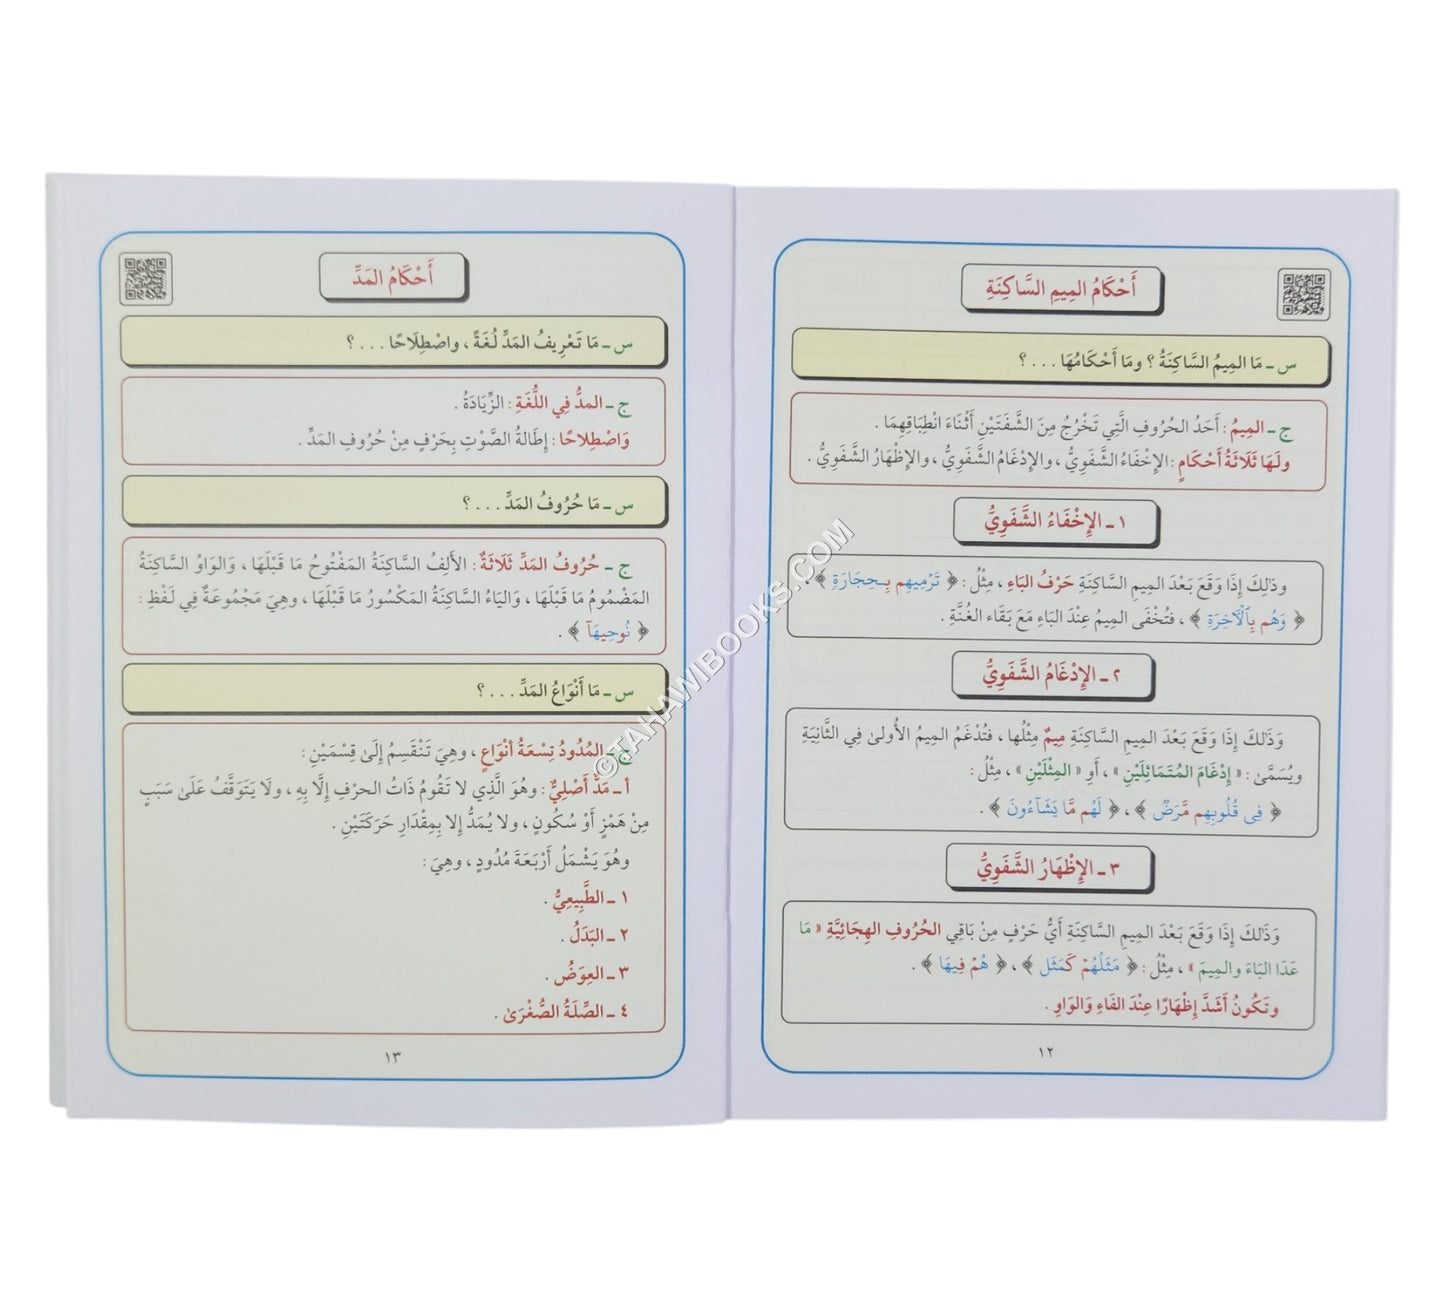 أَحْكَامُ المِيمِ السَّاكِنَةِ
س ـ مَا المِيمُ السَّاكِنَةُ ؟ ومَا أَحْكَامُهَا . . . ؟
ج ـ المِيمُ : أَحَدُ الحُرُوفِ الَّتِي تَخْرُجُ مِنَ الشَّفَتَيْنِ أَثْنَاءَ انْطِبَاقِهِمَا .
ولَهَا ثَلَاثَةُ أَحْكَامٍ : الإِخْفَاءُ الشَّفَوِيُّ ، والإِدْغَامُ الشَّفَوِيُّ ، والإِظْهَارُ الشَّفَوِيُّ .
١ ـ الإِخْفَاءُ الشَّفَوِيُّ
وذٰلِكَ إِذَا وَقَعَ بَعْدَ المِيمِ السَّاكِنَةِ حَرْفُ البَاءِ ، مِثْلُ : ﴿ تَرْمِيهِم بِحِجَارَةٍ ﴾ ،
﴿ وَهُم بِالْآخِرَةِ ﴾ ، فَتُخْفَى المِيمُ عِنْدَ البَاءِ مَعَ بَقَاءِ الغُنَّةِ .
٢ ـ الإِدْغَامُ الشَّفَوِيُّ
وَذَلكَ إِذَا وَقَعَ بَعْدَ المِيمِ السَّاكِنَةِ مِيمٌ مِثْلُها ، فَتُدْغَمُ المِيمُ الأُولىٰ فِي الثَّانِيَةِ
ويُسَمَّىٰ : « إِدْغَامَ المُتَمَاثِلَيْنِ » ، أَوِ « المِثْلَيْنِ » ، مِثْلُ :
﴿ فِى قُلُوبِهِم مَّرَضٌ ﴾ ، ﴿ لَهُم مَّا يَشَآءُونَ ﴾ .
٣ ـ الإِظْهَارُ الشَّفَوِيُّ
وَذَلكَ إِذَا وَقَعَ بَعْدَ المِيمِ السَّاكِنَةِ أَيُّ حَرْفٍ مِنْ بَاقِي الحُرُوفِ الهِجَائِيَّةِ « مَا
عَدَا البَاءَ والمِيمَ » ، مِثْلُ : ﴿ مَثَلُهُمْ كَمَثَلِ ﴾ ، ﴿ هُمْ فِيهَا ﴾ .
وتَكُونُ أَشَدَّ إِظْهَارًا عِنْدَ الفَاءِ وَالوَاوِ .
١٢
أَحْكَامُ المَدِّ
س ـ مَا تَعْرِيفُ المَدِّ لُغَةً ، واصْطِلَاحًا . . . ؟
ج ـ المدُّ فِي اللُّغَةِ : الزِّيَادَةُ .
وَاصْطِلاحًا : إِطَالةُ الصَّوْتِ بِحَرْفٍ مِنْ حُرُوفِ المَدِّ .
س ـ مَا حُرُوفُ المَدِّ . . . ؟
ج ـ حُرُوفُ المَدِّ ثَلَاثَةٌ : الأَلِفُ السَّاكِنَةُ المَفْتُوحُ مَا قَبْلَهَا ، وَالوَاوُ السَّاكِنَةُ
المَضْمُومُ مَا قَبْلَهَا ، وَاليَاءُ السَّاكِنَةُ المَكْسُورُ مَا قَبْلَهَا ، وهِيَ مَجْمُوعَةٌ فِي لَفْظِ :
﴿ نُوحِيهَآ ﴾ .
س ـ مَا أَنْوَاعُ المَدِّ . . . ؟
ج ـ المُدُودُ تِسْعَةُ أنْوَاعٍ ، وهِيَ تَنْقَسِمُ إِلىٰ قِسْمَيْنِ :
أ ـ مَدٌّ أَصْلِيٌّ : وهُوَ الَّذِي لا تَقُومُ ذَاتُ الحرْفِ إِلَّا بِهِ ، ولَا يَتَوَقَّفُ عَلَىٰ سَبَبٍ
مِنْ هَمْزٍ أَوْ سُكُونٍ ، ولا يُمَدُّ إِلا بِمِقْدَارِ حَرَكَتَيْنِ .
وهُوَ يَشْمَلُ أَرْبَعَةَ مُدُودٍ ، وهِيَ :
١ ـ الطَّبِيعِيُّ .
٢ ـ البَدَلُ .
٣ ـ العِوَضُ .
٤ ـ الصِّلَةُ الصُّغْرَىٰ .
١٣
©TAHAWIBOOKS.COM